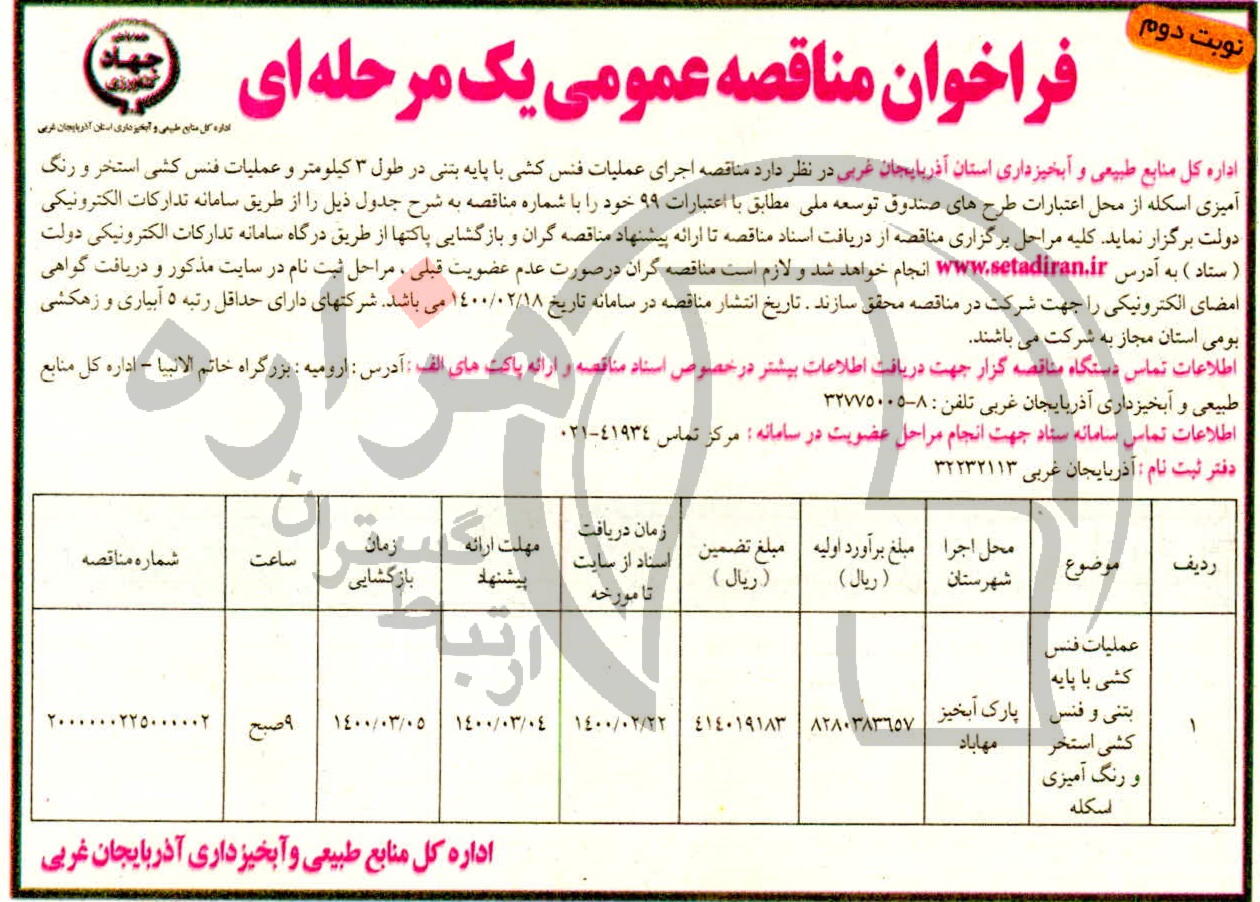 نوبت دوم
فراخوان مناقصه عمومی یک مرحله ای
جهاد
کشاورزی
اداره کل منابع طبیعی و آبخیزداری استان آذربایجان غربی
اداره کل منابع طبیعی و آبخیزداری استان آذربایجان غربی در نظر دارد مناقصه اجرای عملیات فنس کشی با پایه بتنی در طول ۳ کیلومتر و عملیات فنس کشی استخر و رنگ
آمیزی اسکله از محل اعتبارات طرح های صندوق توسعه ملی مطابق با اعتبارات ۹۹ خود را با شماره مناقصه به شرح جدول ذیل را از طریق سامانه تدارکات الکترونیکی
دولت برگزار نماید. کلیه مراحل برگزاری مناقصه از دریافت اسناد مناقصه تا ارائه پیشنهاد مناقصه گران و بازگشایی پاکتها از طریق درگاه سامانه تدارکات الکترونیکی دولت
( ستاد ) به آدرس www.setadiran.ir انجام خواهد شد و لازم است مناقصه گران درصورت عدم عضویت قبلی ، مراحل ثبت نام در سایت مذکور و دریافت گواهی
امضای الکترونیکی را جهت شرکت در مناقصه محقق سازند . تاریخ انتشار مناقصه در سامانه تاریخ ۱٤۰۰/۰۲/۱۸ می باشد. شرکتهای دارای حداقل رتبه ۵ آبیاری و زهکشی
بومی استان مجاز به شرکت می باشند.
اطلاعات تماس دستگاه مناقصه گزار جهت دریافت اطلاعات بیشتر درخصوص اسناد مناقصه و ارائه پاکت های الف : آدرس : ارومیه : بزرگراه خاتم الانبیا – اداره کل منابع
طبیعی و آبخیزداری آذربایجان غربی تلفن : ۸–۳۲۷۷۵۰۰۵
اطلاعات تماس سامانه ستاد جهت انجام مراحل عضویت در سامانه : مرکز تماس ٤۱۹۳٤–۰۲۱
دفتر ثبت نام : آذربایجان غربی ۳۲۲۳۲۱۱۳
ردیف
موضوع
محل اجرا
شهرستان
مبلغ برآورد اولیه
( ریال )
مبلغ تضمین
( ریال )
زمان دریافت
اسناد از سایت
تا مورخه
مهلت ارائه
پیشنهاد
زمان
بازگشایی
ساعت
شماره مناقصه
۱
عملیات فنس
کشی با پایه
بتنی و فنس
کشی استخر
و رنگ آمیزی
اسکله
پارک آبخیز
مهاباد
۸۲۸۰۳۸۳٦۵۷
٤۱٤۰۱۹۱۸۳
۱٤۰۰/۰۲/۲۲
۱٤۰۰/۰۳/۰٤
۱٤۰۰/۰۳/۰۵
۹صبح
۲۰۰۰۰۰۰۲۲۵۰۰۰۰۰۲
اداره کل منابع طبیعی وآبخیزداری آذربایجان غربی
هزاره
گستران
ارتباط